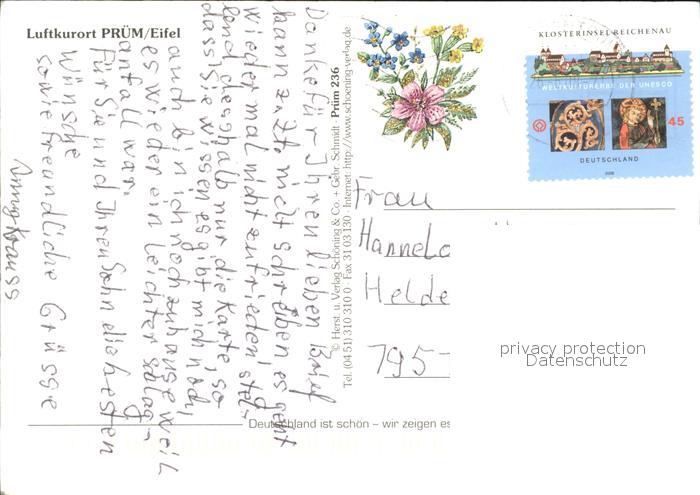 Luftkurort PRÜM/Eifel
Danke für Ihren lieben Brief
kann z.Zt. nicht schreiben es geht
wieder mal nicht zufrieden stel-
lend desshalb nur die Karte, so
dass Sie wissen es gibt mich noch,
auch bin ich noch zuhause weil
es wieder ein leichter schlag-
anfall war.
für Sie und Ihren Sohn die besten
Wünsche
sowie freundliche Grüsse
Krauss
© Herst. u. Verlag Schöning & Co. + Gebr. Schmidt Prüm 236
Tel. (04 51) 310 310 0 · Fax 31 03 130 · Internet: http://www.schoening-verlag.de
KLOSTERINSEL REICHENAU
WELTKULTURERBE DER UNESCO
45
DEUTSCHLAND
2008
Frau
Hannelo
Helde
795
privacy protection
Datenschutz
Deutschland ist schön – wir zeigen es